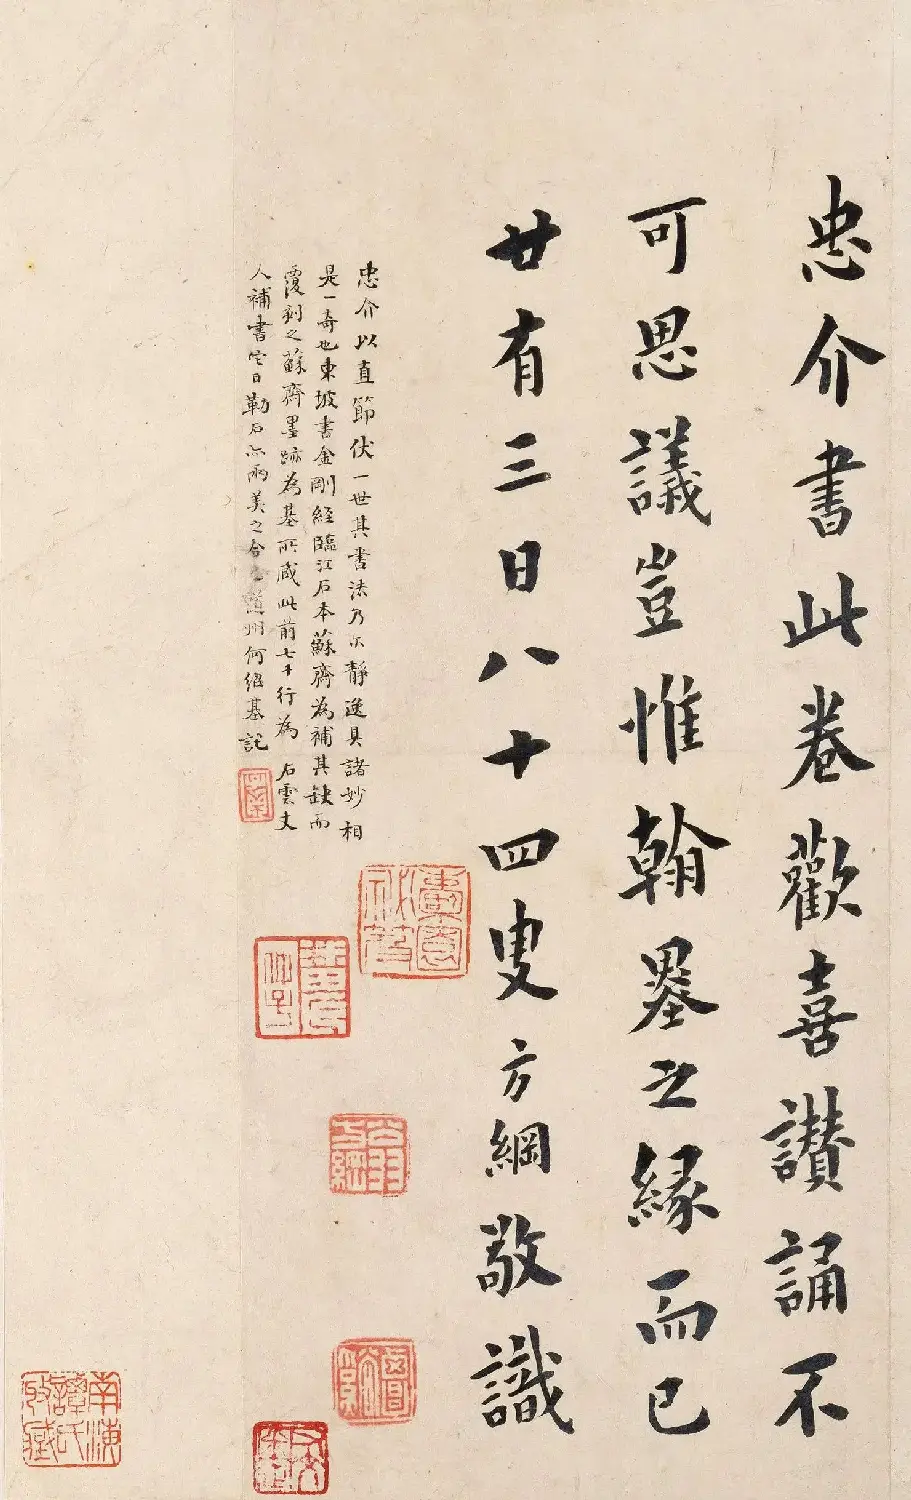 忠介書此卷歡喜讃誦不
可思議豈惟翰墨之縁而已
廿有三日八十四叟方綱敬識
忠介以直節伏一世其書法乃尒靜逸具諸妙相
是一奇也東坡書金剛經臨江石本蘇齋為補其缺而
覆刻之蘇齋墨跡為基所咸此前七十行為石雲丈
人補書它日勒石亦兩美之合道州何紹基記
翁方綱
南海譚氏收藏